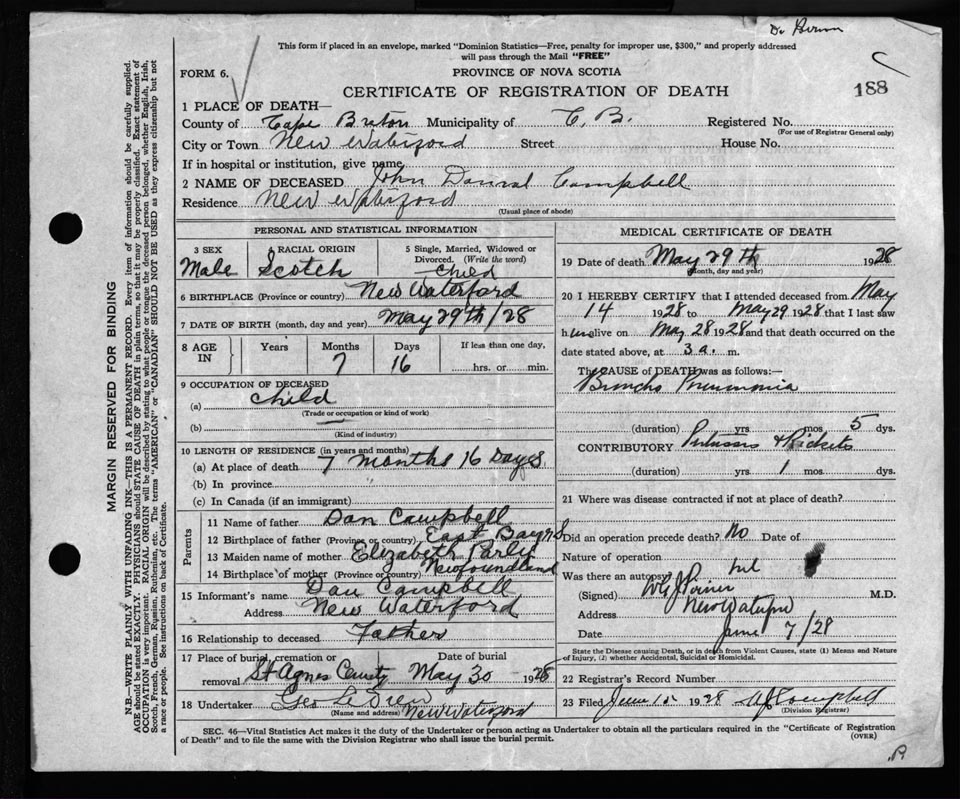 This form if placed in an envelope, marked "Dominion Statistics—Free, penalty for improper use, $300," and properly addressed
will pass through the Mail "FREE"
FORM 6.
PROVINCE OF NOVA SCOTIA
CERTIFICATE OF REGISTRATION OF DEATH
188
1 PLACE OF DEATH—
County of Cape Breton Municipality of C. B. Registered No.
(For use of Registrar General only)
City or Town New Waterford Street House No.
If in hospital or institution, give name
2 NAME OF DECEASED John Campbell
Residence New Waterford
(Usual place of abode)
PERSONAL AND STATISTICAL INFORMATION
3 SEX 4 RACIAL ORIGIN 5 Single, Married, Widowed or Divorced. (Write the word)
Male Scotch child
6 BIRTHPLACE (Province or country) New Waterford
7 DATE OF BIRTH (month, day and year) May 29th/28
8 AGE IN Years Months Days If less than one day,
7 16 hrs. or min.
9 OCCUPATION OF DECEASED
(a) child
(Trade or occupation or kind of work)
(b)
(Kind of industry)
10 LENGTH OF RESIDENCE (in years and months)
(a) At place of death 7 months 16 Days
(b) In province
(c) In Canada (if an immigrant)
Parents
11 Name of father Dan Campbell
12 Birthplace of father (Province or country) East Bay N S
13 Maiden name of mother Elizabeth
14 Birthplace of mother (Province or country) Newfoundland
15 Informant's name Dan Campbell
Address New Waterford
16 Relationship to deceased Father
17 Place of burial, cremation or removal Date of burial
St Agnes May 30 1928
18 Undertaker Geo
(Name and address) New Waterford
MEDICAL CERTIFICATE OF DEATH
19 Date of death May 29th 1928
(Month, day and year)
20 I HEREBY CERTIFY that I attended deceased from May
14 1928 to May 29 1928 that I last saw
h alive on May 28 1928 and that death occurred on the
date stated above, at 3 a. m.
The CAUSE of DEATH was as follows:—
Broncho Pneumonia
(duration) yrs mos 5 dys.
CONTRIBUTORY Pertussis & Rickets
(duration) yrs 1 mos dys.
21 Where was disease contracted if not at place of death?
Did an operation precede death? No Date of
Nature of operation
Was there an autopsy?
(Signed) M.D.
Address New Waterford
Date June 7/28
State the Disease causing Death, or in death from Violent Causes, state (1) Means and Nature
of Injury, (2) whether Accidental, Suicidal or Homicidal.
22 Registrar's Record Number
23 Filed June 15 1928 Campbell
(Division Registrar)
SEC. 46—Vital Statistics Act makes it the duty of the Undertaker or person acting as Undertaker to obtain all the particulars required in the "Certificate of Registration
of Death" and to file the same with the Division Registrar who shall issue the burial permit.
(OVER)
MARGIN RESERVED FOR BINDING
N.B.—WRITE PLAINLY WITH UNFADING INK—THIS IS A PERMANENT RECORD. Every item of information should be carefully supplied.
AGE should be stated EXACTLY. PHYSICIANS should STATE CAUSE OF DEATH in plain terms, so that it may be properly classified. Exact statement of
OCCUPATION is very important. RACIAL ORIGIN will be described by stating to what people or tongue the deceased person belonged, whether English, Irish,
Scotch, French, German, Russian, Ruthenian, etc. The terms "AMERICAN" or "CANADIAN" SHOULD NOT BE USED as they express citizenship but not
a race or people. See instructions on back of Certificate.